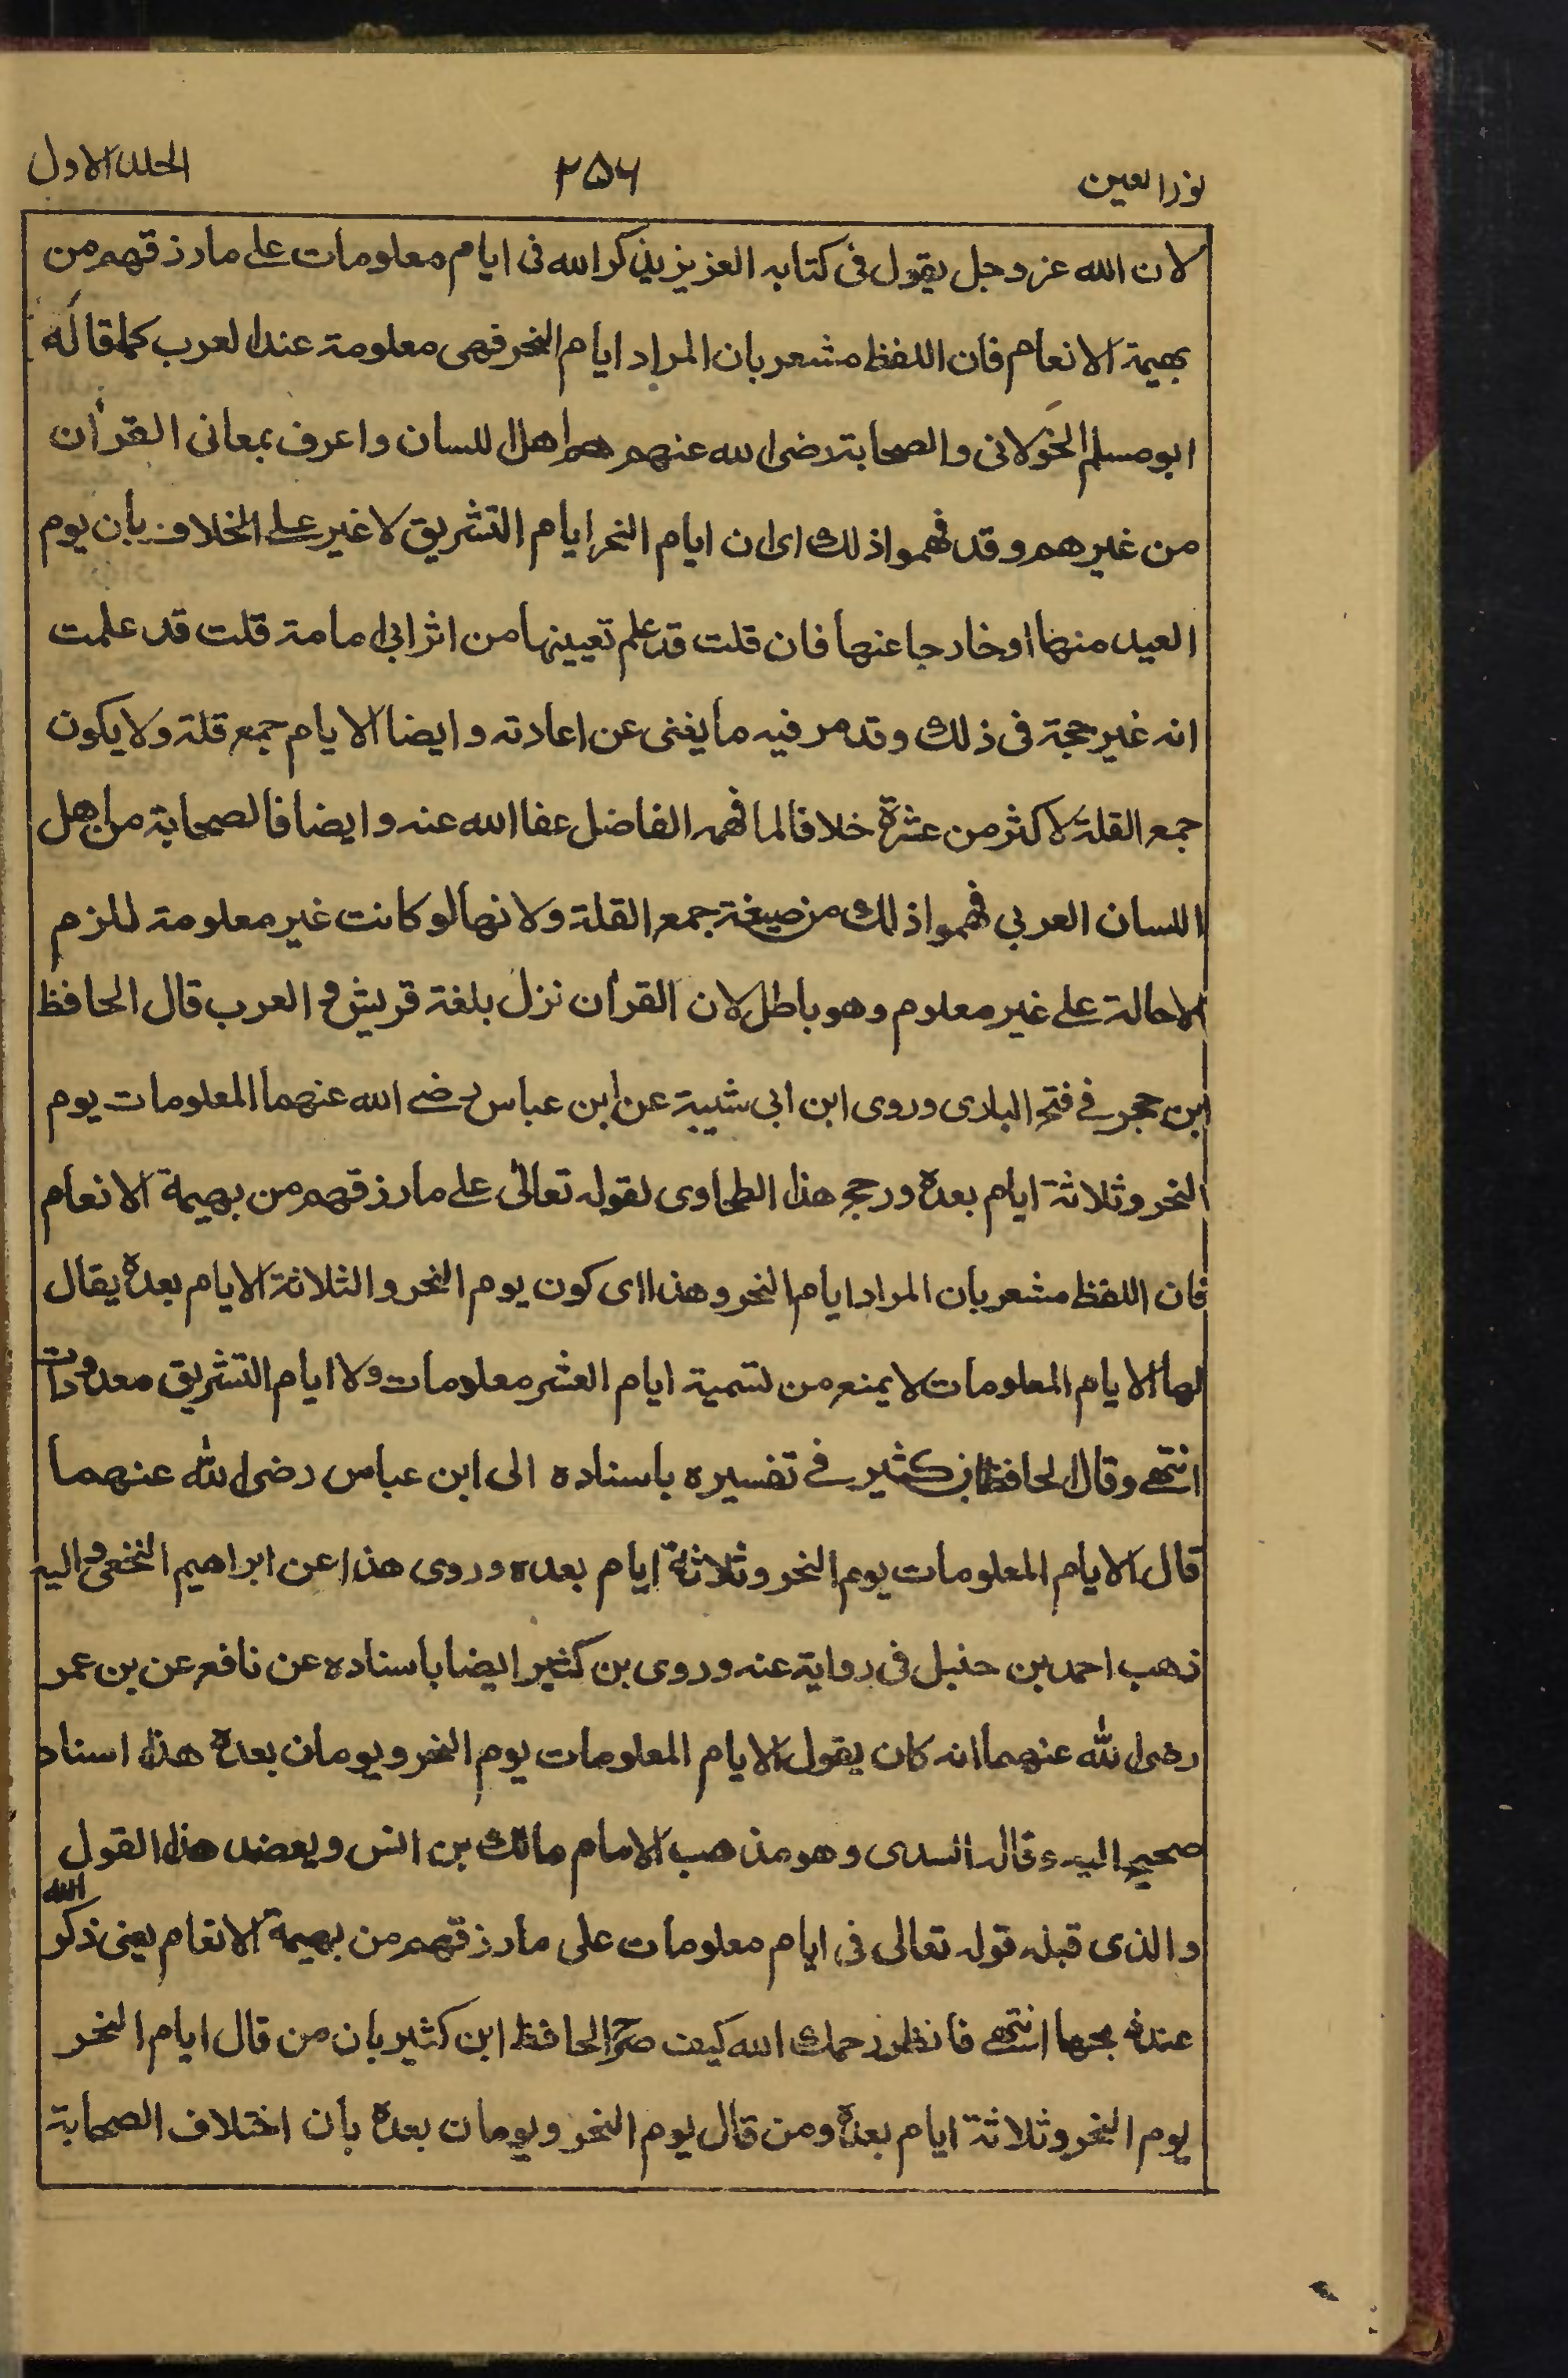 نور العين ٢٥٦ الجلد الاول
لان الله عز وجل يقول فى كتابه العزيز يذكر الله فى ايام معلومات على ما رزقهم من
بهيمة الانعام فان اللفظ مشعر بان المراد ايام النحر فهى معلومة عند العرب كما قاله
ابو مسلم الخولانى والصحابة رضى الله عنهم هم اهل اللسان واعرف بمعانى القرأن
من غيرهم وقد فهموا ذلك اى ان ايام النحر ايام التشريق لا غير على الخلاف بأن يوم
العيد منها او خارجا عنها فان قلت قد علم تعيينها من اثر ابى امامة قلت قد علمت
انه غير حجة فى ذلك وقد مر فيه ما يغنى عن اعادته و ايضا الايام جمع قلة ولا يكون
جمع القلة لاكثر من عشرة خلافا لما فهمه الفاضل عفا الله عنه وايضا فالصحابة من اهل
اللسان العربي فهموا ذلك من صيغة جمع القلة ولانها لو كانت غير معلومة للزم
الاحالة على غير معلوم وهو باطل لان القرأن نزل بلغة قريش و العرب قال الحافظ
ابن حجر في فتح البارى وروى ابن ابى شيبة عن ابن عباس رضي الله عنهما المعلومات يوم
النحر وثلاثة ايام بعده ورجح هذا الطحاوى لقوله تعالى على ما رزقهم من بهيمة الانعام
فان اللفظ مشعر بأن المراد ايام النحر وهذا اى كون يوم النحر والثلاثة الايام بعده يقال
لها الايام المعلومات لا يمنع من تسمية ايام العشر معلومات ولا ايام التشريق معدودات
انتهى وقال الحافظ ابن كثير في تفسيره باسناده الى ابن عباس رضى الله عنهما
قال الايام المعلومات يوم النحر وثلاثة ايام بعده وروى هذا عن ابراهيم النخعى واليه
ذهب احمد بن حنبل فى رواية عنه وروى بن كثير ايضا باسناده عن نافع عن بن عمر
رضى الله عنهما انه كان يقول الايام المعلومات يوم النحر ويومان بعده هذا اسناد
صحيح اليه وقاله السدى وهو مذهب الامام مالك بن انس ويعضد هذا القول
والذى قبله قوله تعالى فى ايام معلومات على ما رزقهم من بهيمة الانعام يعنى ذكر الله
عند انتهى فانظر رحمك الله كيف صرح الحافظ ابن كثير بان من قال ايام النحر
يوم النحر وثلاثة ايام بعده ومن قال يوم النحر ويومان بعده بأن اختلاف الصحابة